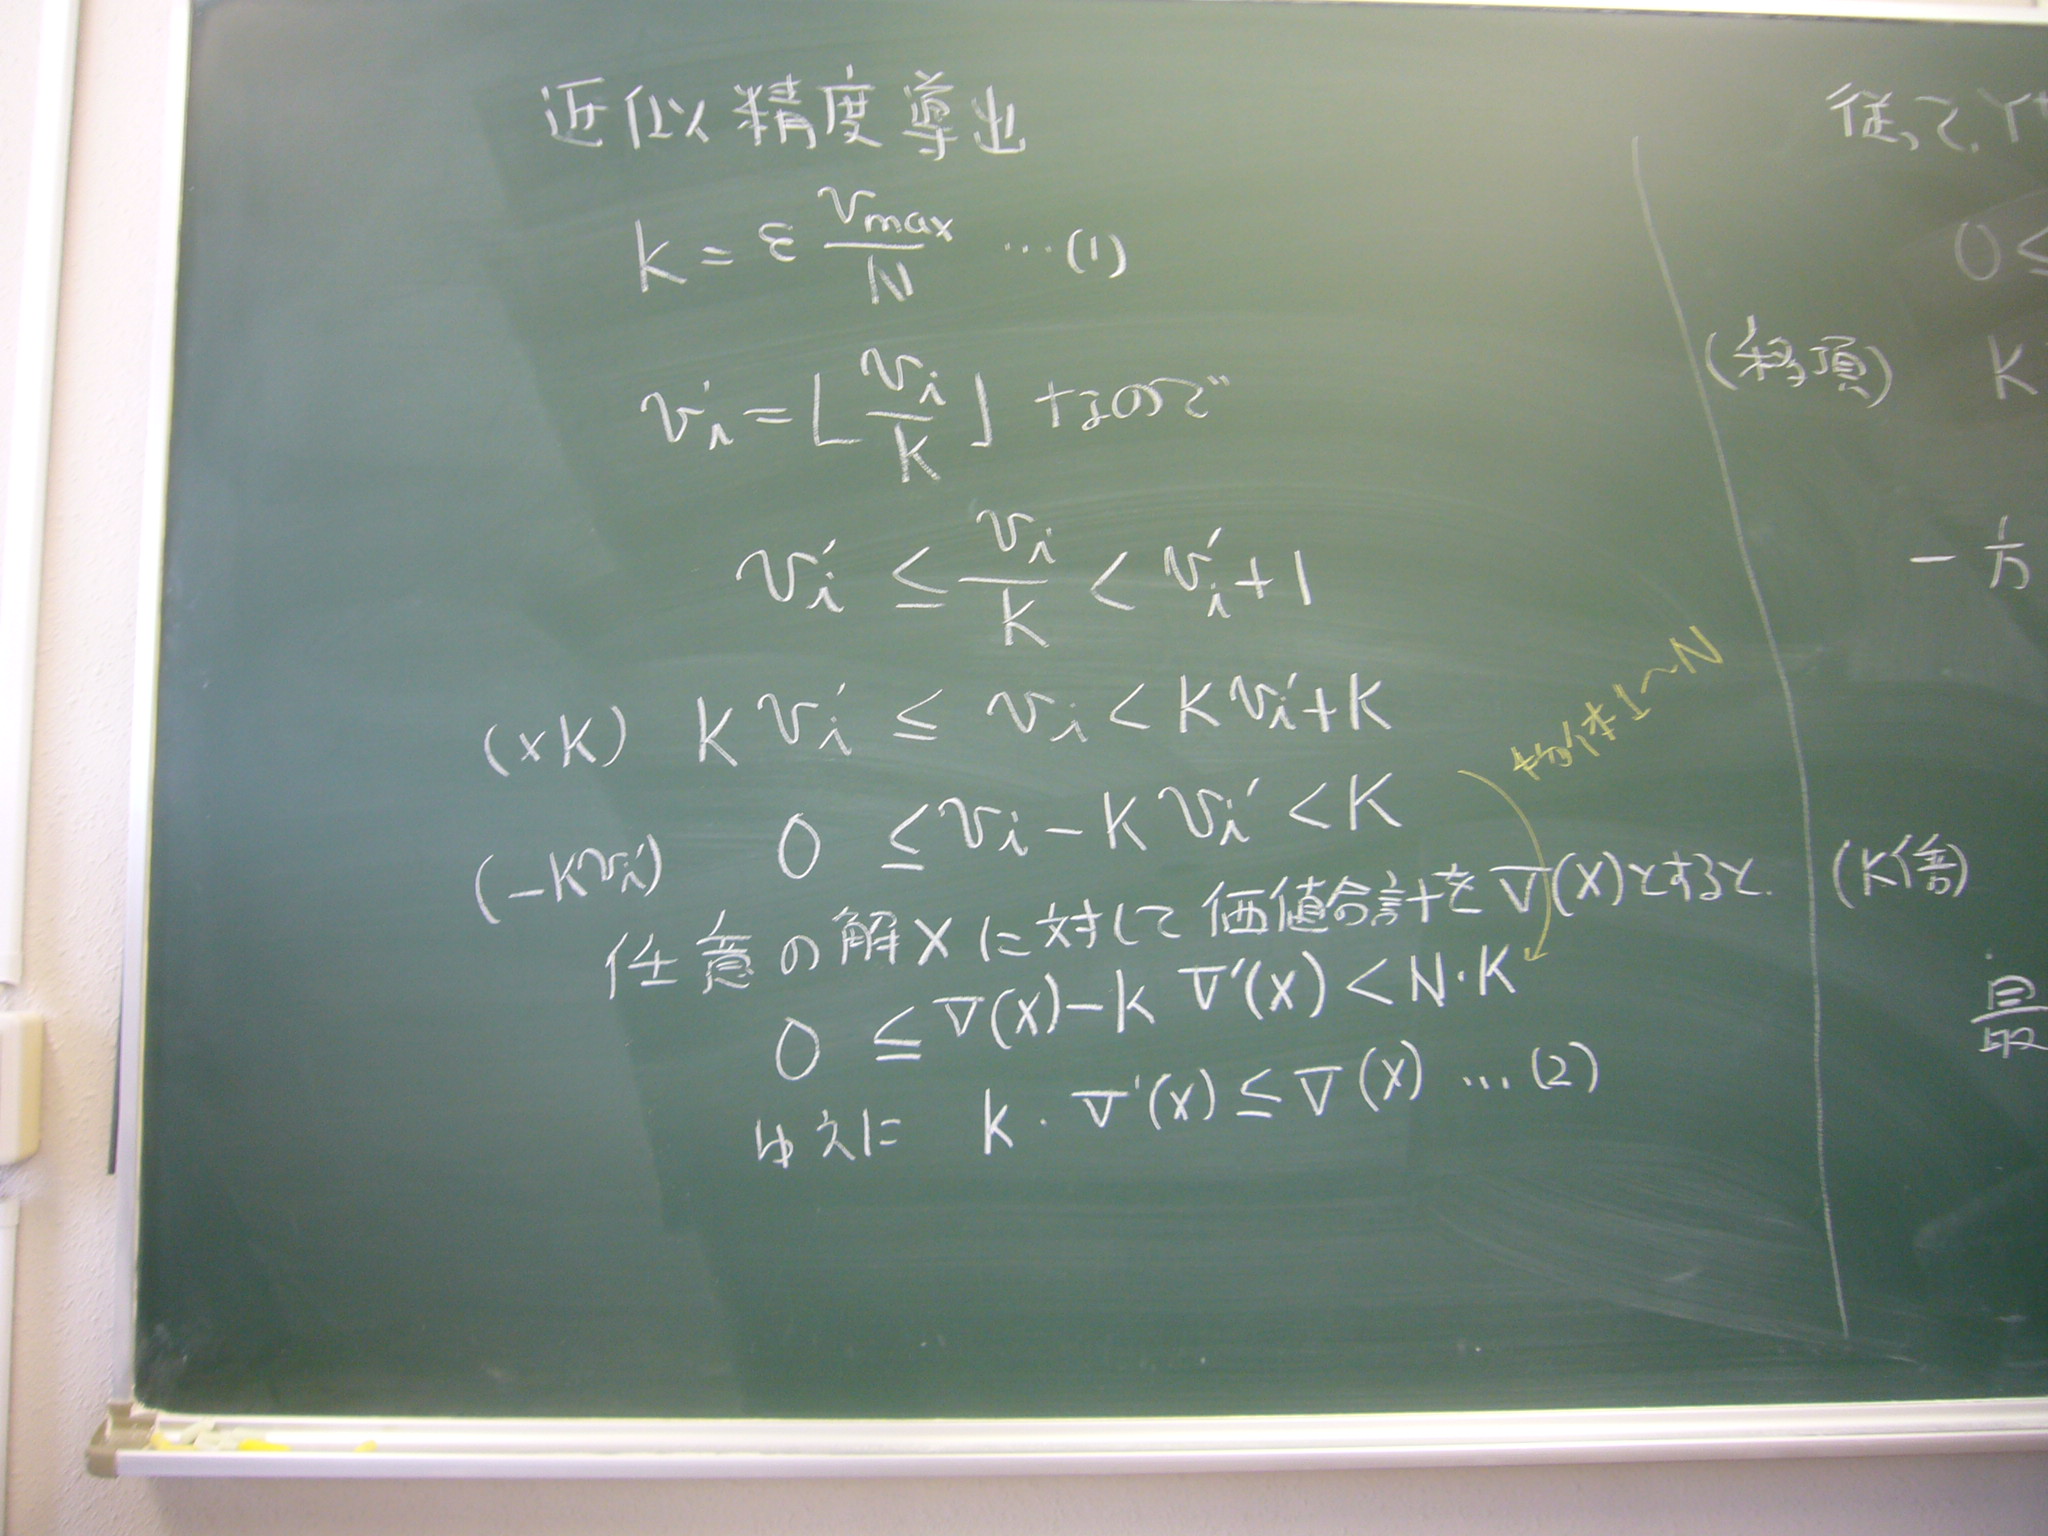 近似精度導出
k = ε v_max / N …(1)
v'_i = ⌊ v_i / k ⌋ なので
v'_i ≤ v_i / k < v'_i + 1
(×K) K v'_i ≤ v_i < K v'_i + K
(-K v'_i) 0 ≤ v_i - K v'_i < K
物体1～N
任意の解Xに対して価値合計をV(X)とすると.
0 ≤ V(X) - k V'(X) < N・K
ゆえに k・V'(X) ≤ V(X) …(2)
従って、
0 ≤
(移項) K
一方
(K倍)
最